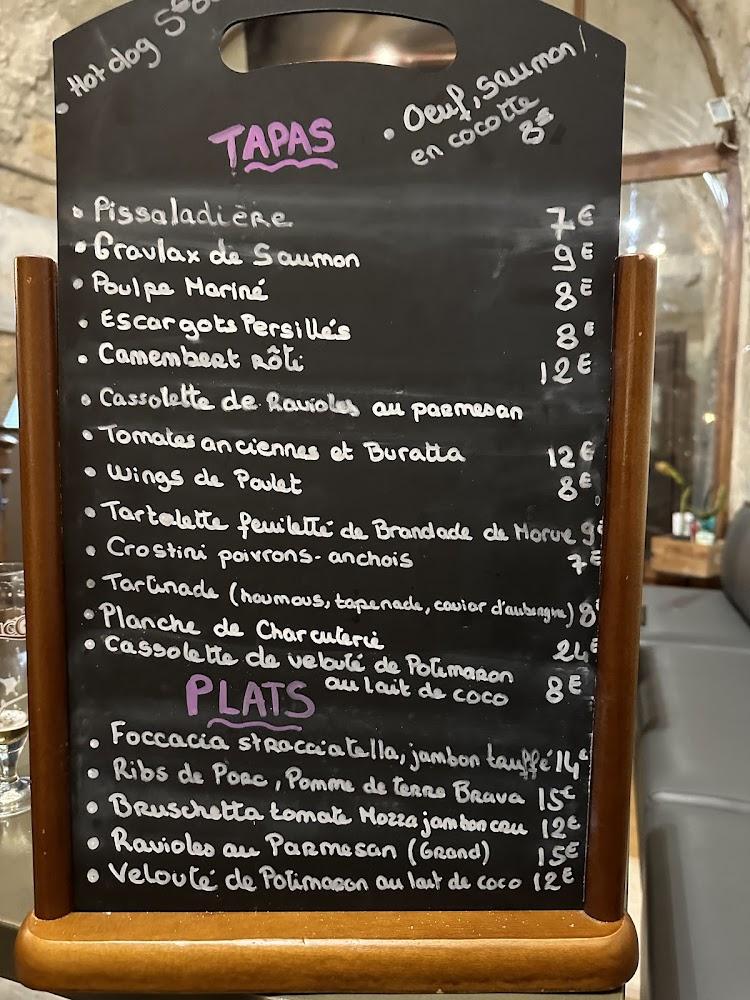 • Hot dog
• Oeuf, saumon /
en cocotte
8€
TAPAS
• Pissaladière 7€
• Gravlax de Saumon 9€
• Poulpe Mariné 8€
• Escargots Persillés 8€
• Camembert Rôti 12€
• Cassolette de Ravioles au parmesan
• Tomates anciennes et Buratta 12€
• Wings de Poulet 8€
• Tartelette feuilleté de Brandade de Morue 9€
• Crostini poivrons-anchois 7€
• Tartinade (houmous, tapenade, caviar d'aubergine) 8€
• Planche de Charcuterie 24€
• Cassolette de velouté de Potimaron
au lait de coco 8€
PLATS
• Foccacia stracciatella, jambon truffé 14€
• Ribs de Porc, Pomme de terre Brava 15€
• Bruschetta tomate Mozza jambon cru 12€
• Ravioles au Parmesan (Grand) 15€
• Velouté de Potimaron au lait de coco 12€